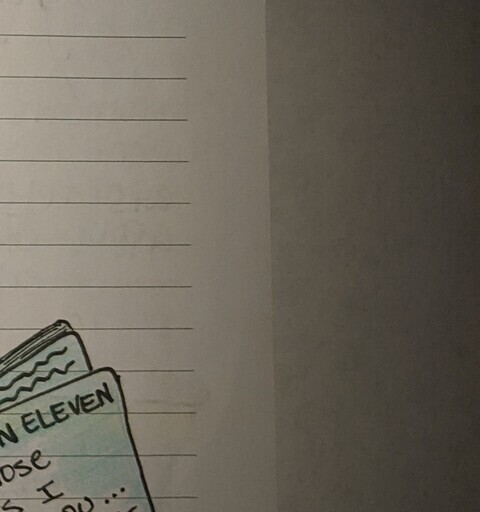 N ELEVEN
OSE
S I
OU...